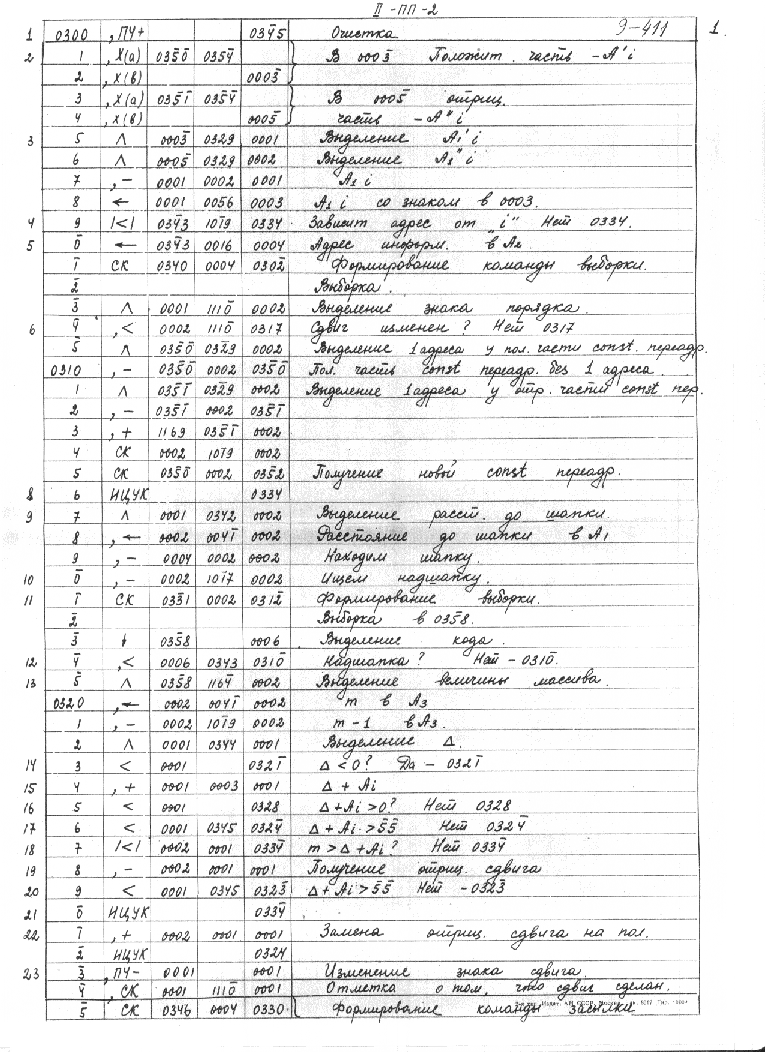 II-ПП-2
9-411
1.
1 0300 , ПУ+ 03Ȳ5 Очистка
2 1 , X(a) 035̄0̄ 035̄4̄ В 0003̄ Положит. часть - A'i
2 , X(в) 0003̄
3 , X(a) 035̄1̄ 035̄4̄ В 0005̄ отриц.
4 , X(в) 0005̄ часть - A"i
3 5 ∧ 0003̄ 0329 0001 Выделение A₁'i
6 ∧ 0005̄ 0329 0002 Выделение A₁"i
7 , − 0001 0002 0001 A₁ i
8 ← 0001 0056 0003 A₁ i со знаком в 0003.
4 9 |<| 034̄3 101̄9 0334 Зависит адрес от „i" Нет 0334.
5 0̄ ← 034̄3 0016 0004 Адрес информ. в A₂
1̄ СК 0340 0004 0302̄ Формирование команды выборки.
2̄ Выборка.
3̄ ∧ 0001 111̄0̄ 0002 Выделение знака порядка.
6 4̄ , < 0002 111̄0̄ 0317 Сдвиг изменен? Нет 0317
5̄ ∧ 035̄0̄ 0329 0002 Выделение 1 адреса у пол. части const. переадр.
0310 , − 035̄0̄ 0002 035̄0̄ Пол. часть const переадр. без 1 адреса.
1 ∧ 035̄1̄ 0329 0002 Выделение 1 адреса у отр. части const пер.
2 , − 035̄1̄ 0002 035̄1̄
3 , + 1169 035̄1̄ 0002
4 СК 0002 101̄9 0002
5 СК 035̄0̄ 0002 035̄2 Получение новой const переадр.
8 6 ИЦУК 0334
9 7 ∧ 0001 0342 0002 Выделение расст. до шапки.
8 , ← 0002 0041̄ 0002 Расстояние до шапки в A₁
9 , − 0004 0002 0002 Находим шапку.
10 0̄ , − 0002 101̄7 0002 Ищем надшапку.
11 1̄ СК 033̄1 0002 0312̄ Формирование выборки.
2̄ Выборка в 035̄8.
3̄ ↓ 035̄8 0006 Выделение кода.
12 4̄ , < 0006 034̄3 0310̄ Надшапка? Нет - 0310̄.
13 5̄ ∧ 035̄8 1164̄ 0002 Выделение величины массива.
0320 , ← 0002 0041̄ 0002 m в A₃
1 , − 0002 101̄9 0002 m-1 в A₃.
2 ∧ 0001 0344 0001 Выделение Δ.
14 3 < 0001 0321̄ Δ<0? Да - 0321̄
15 4 , + 0001 0003 0001 Δ + Ai
16 5 < 0001 0328 Δ+Ai>0? Нет 0328
17 6 < 0001 0345 0324̄ Δ + Ai > 5̄5̄ Нет 0324̄
18 7 |<| 0002 0001 0334̄ m > Δ + Ai? Нет 0334̄
19 8 , − 0002 0001 0001 Получение отриц. сдвига
20 9 < 0001 0345 0323̄ Δ + Ai > 5̄5̄ Нет - 0323̄
21 0̄ ИЦУК 0334̄
22 1̄ , + 0002 0001 0001 Замена отриц. сдвига на пол.
2̄ ИЦУК 0324
23 3̄ , ПУ− 0001 0001 Изменение знака сдвига.
4̄ , СК 0001 111̄0̄ 0001 Отметка о том, что сдвиг сделан.
5̄ СК 0346 0004 0330 Формирование команды засылки